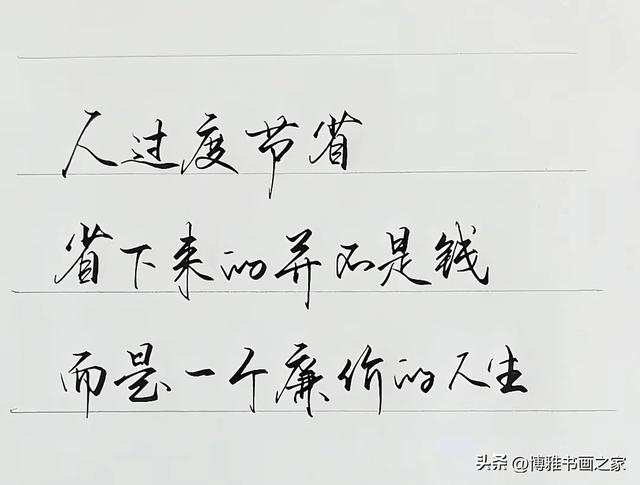 人过度节省
省下来的并不是钱
而是一个廉价的人生
头条 @博雅书画之家